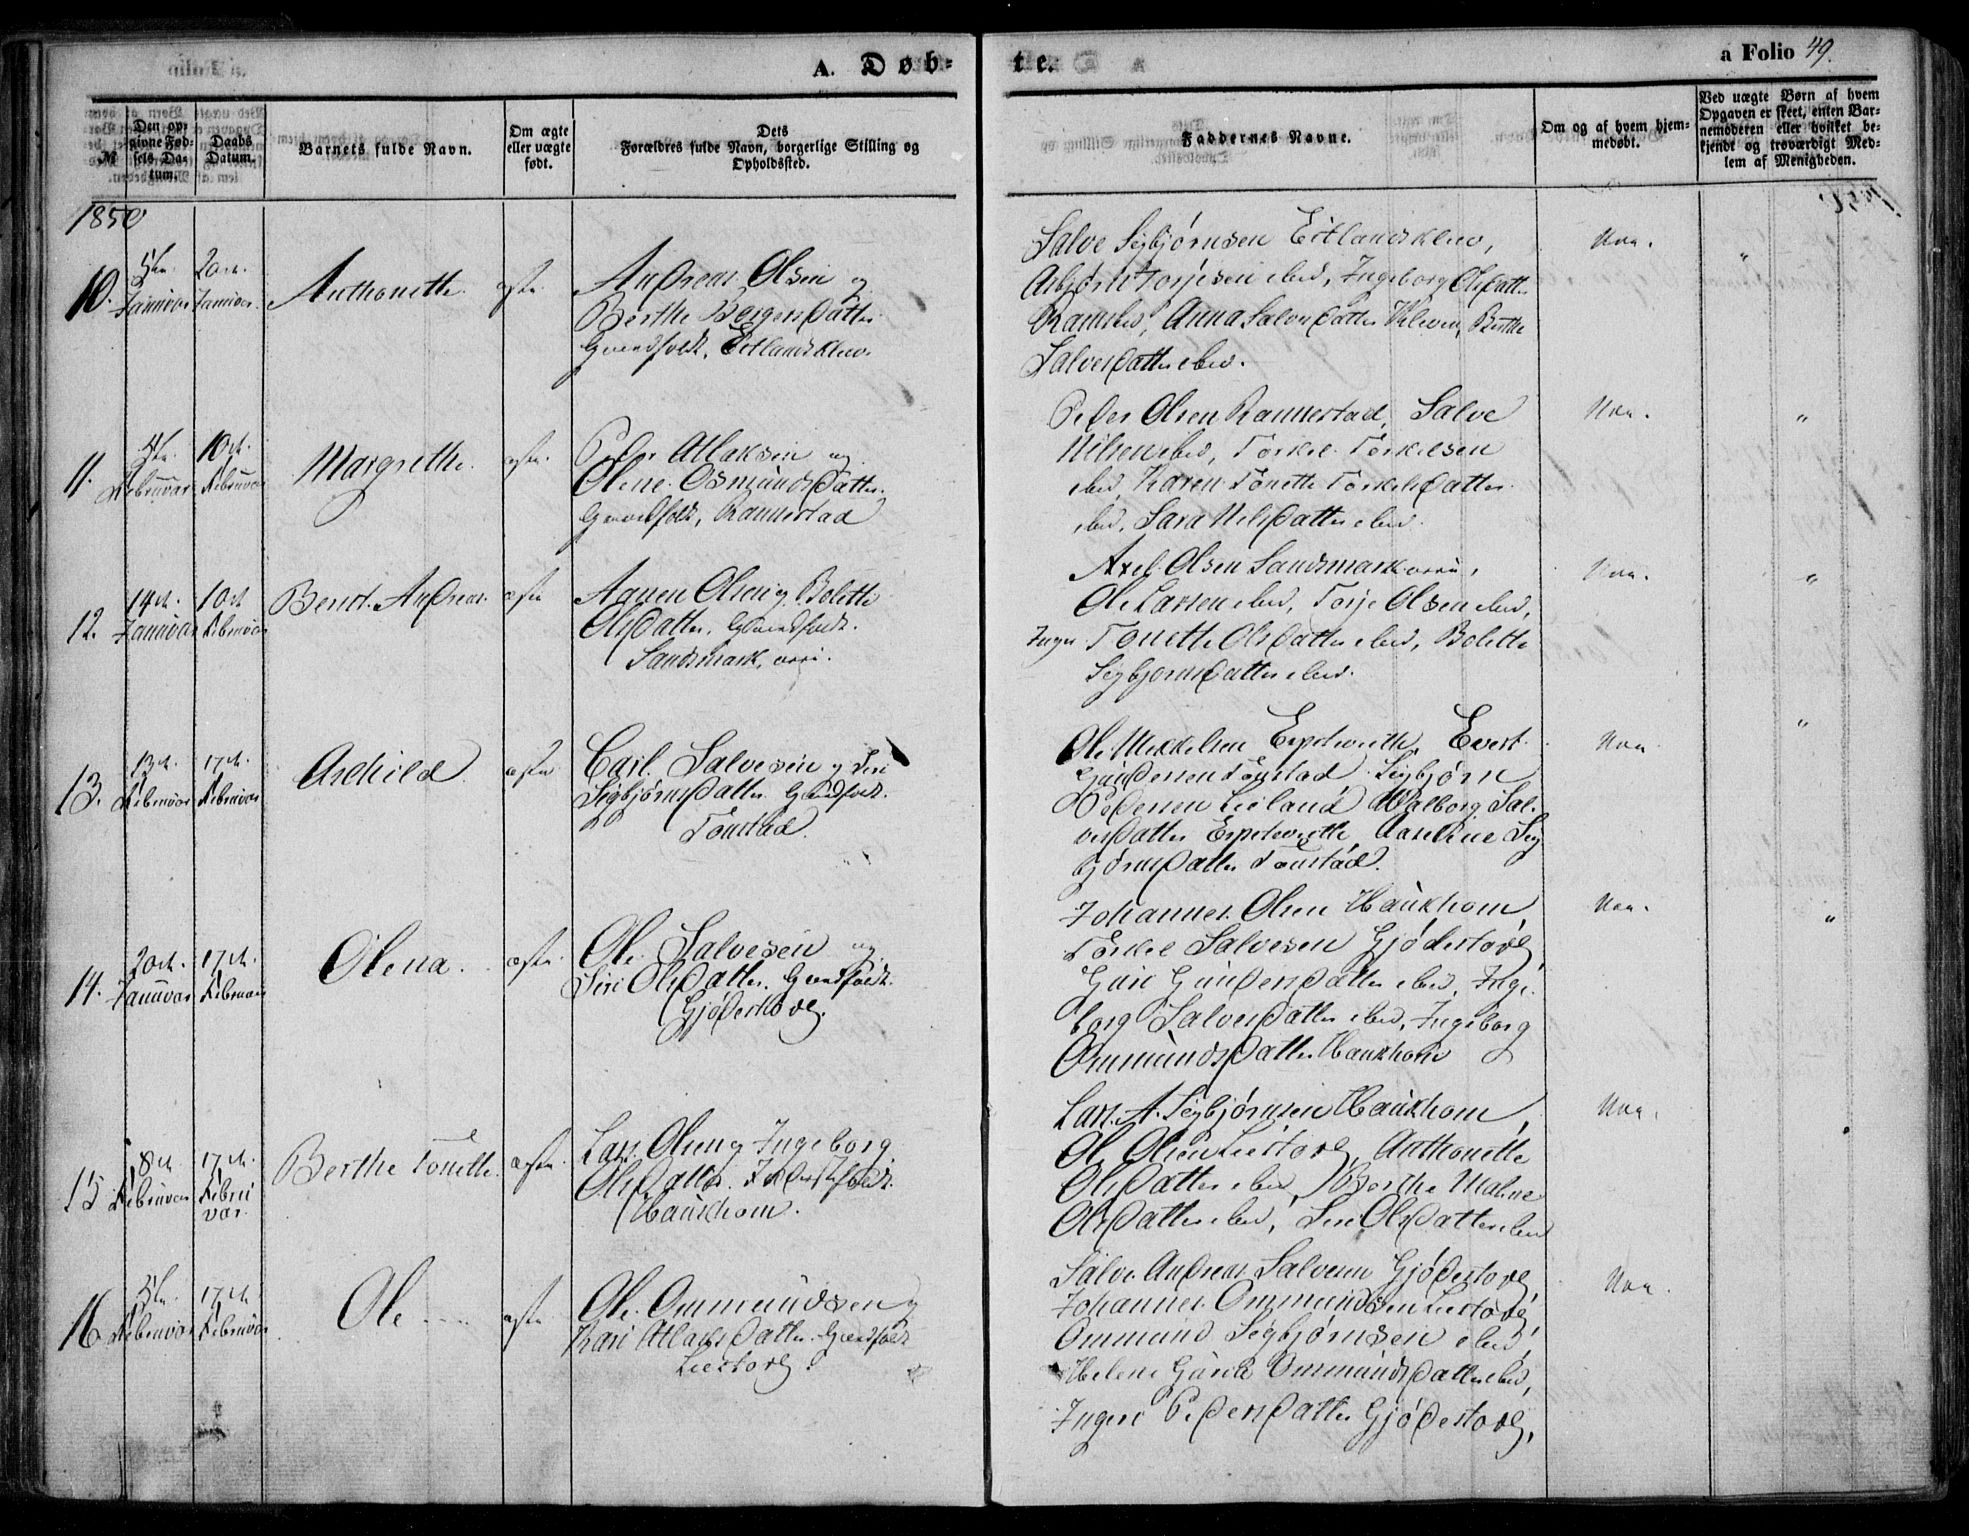 A. Døb-
te.
a Folio 49.
№
Den op-
givne Fød-
sels Da-
tum.
Daabs
Datum.
Barnets fulde Navn.
Om ægte
eller uægte
født.
Dets
Forældres fulde Navn, borgerlige Stilling og
Opholdssted.
Faddernes Navne.
Om og af hvem hjem-
medøbt.
Ved uægte Børn af hvem
Opgaven er skeet, enten Bar-
nemoderen eller hvilket be-
kjendt og troværdigt Med-
lem af Menigheden.
1850
10.
5te
Januar
20de
Januar
Anthonette
ægte
Andreas Olsen og
Berthe Bergersdatter
Gaardfolk, Eitlandsklev
Salve Sigbjørnsen Eitlandsklev,
Asbjørn Torjesen ibid, Ingeborg Olsdatter
Ramsli, Anna Salvesdatter Kleven, Berthe
Salvesdatter ibid.
11.
Februar
10de
Februar
Margrethe
ægte
Peder Atlaksen og
Olene Osmundsdatter
Gaardfolk, Rannestad
Peder Olsen Rannestad, Salve
Nilsen ibid, Torkel Torkelsen
ibid, Karen Tonette Torkelsdatter
ibid, Sara Nilsdatter ibid.
12.
14de
Januar
10de
Februar
Bernt Andreas
ægte
Aanen Olsen og Bolette
Olsdatter, Gaardfolk
Sandsmark, øvre.
Axel Olsen Sandsmark øvre,
Ole Larsen ibid, Torje Olsen ibid,
Inger Tonette Olsdatter ibid, Bolette
Sigbjørnsdatter ibid.
13.
13de
Februar
17de
Februar
Aschild
ægte
Carl Salvesen og Siri
Sigbjørnsdatter Gaardfolk
Tonstad.
Ole Mikkelsen Espetveith, Evert
Gundersen Tonstad, Sigbjørn
Pedersen Liland, Walborg Sal-
vesdatter Espetveith, Aaseline Sig
bjørnsdatter Tonstad.
14.
20de
Januar
17de
Februar
Olena.
ægte
Ole Salvesen og
Siri Olsdatter, Gaardfolk
Gjødestøl.
Johannes Olsen Haukhom,
Torkel Salvesen Gjødestøl,
Guri Gundersdatter ibid, Inge-
borg Salvesdatter ibid, Ingeborg
Ommundsdatter Haukhom
15
8de
Februar
17de
Febru
var.
Berthe Tonette
ægte
Lars Olsen og Ingeborg
Olsdatter
Haukhom.
Lars A. Sigbjørnsen Haukhom,
Ole Olsen Liestøl, Anthonette
Olsdatter ibid, Berthe Malene
Olsdatter ibid, Siri Olsdatter ibid
16
5te
Februar
17de
Februar
Ole
ægte
Ole Ommundsen og
Kari Atlaksdatter Gaardfolk
Liestøl.
Salve Andreas Salvesen Gjødestøl,
Johannes Ommundsen Liestøl,
Ommund Sigbjørnsen ibid,
Helene Gurie Ommundsdatter ibid,
Ingeri Pedersdatter Gjødestøl,